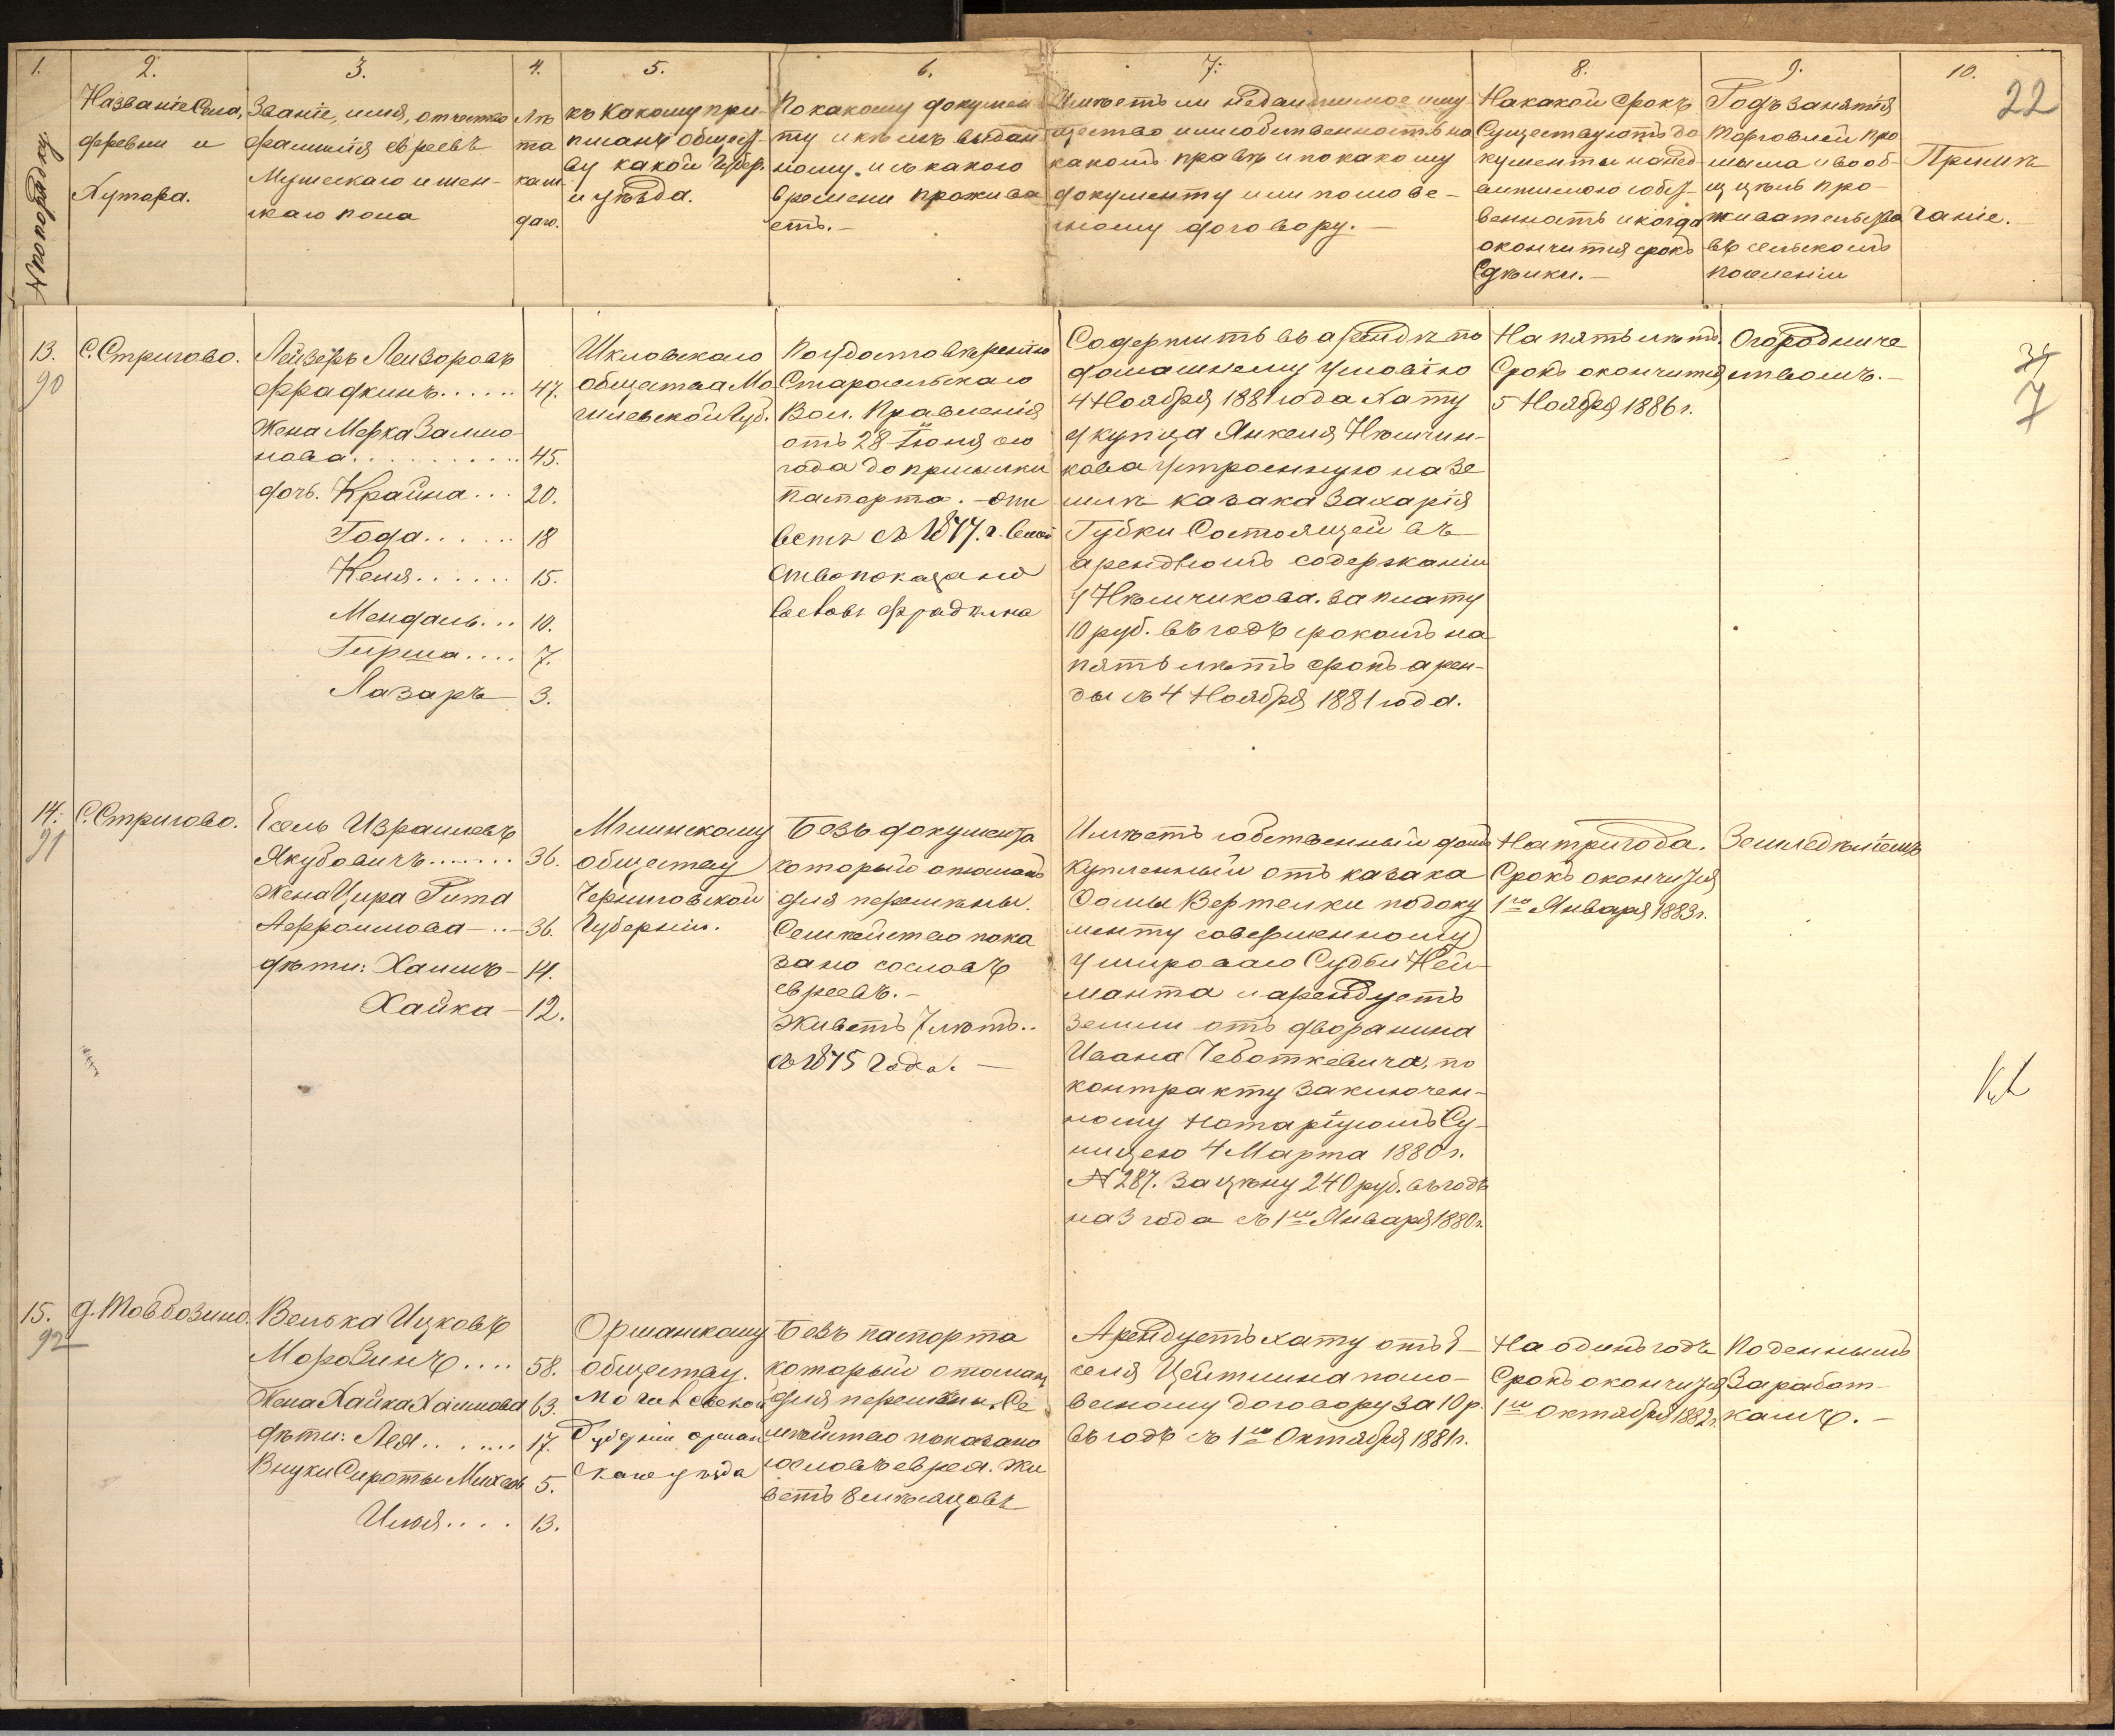 1.
2.
3.
4.
5.
6.
7.
8.
9.
10.
22
Названіе Села,
деревни и
Хутора.
Званіе, имя, отчество
фамилія евреевъ
Мужескаго и жен-
скаго пола
Лѣ
та
каж
даго.
къ Какому при-
писанъ общест-
ву какой Губер.
и уѣзда.
По какому докумен
ту и кѣмъ выдан
ному. и съ какого
времени прожива
етъ.-
Имѣетъ ли недвижимое иму
щество или собственность на
какомъ правѣ и по какому
документу или полове-
сному договору.-
На какой срокъ
Существуютъ до
кументы на нед
вижимою собст
венность и когда
окончится срокъ
Сдѣлки.-
Родъ занятія
торговлей про
мысла и вооб-
ще цѣль про-
живательства
въ сельскомъ
поселеніи
Примѣ
чаніе.
13.
90
С. Стригово.
Лейзеръ Лейзоровъ
Фрадкинъ...... 47.
Жена Мерка Залмо
нова.......... 45.
дочь. Крайна... 20.
Года...... 18
Кеня...... 15.
Мендаль... 10.
Гирша.... 7.
Лазаръ 3.
Шкловскаго
общества Мо
гилевской Губ.
По удостовѣренію
Старосельскаго
Вол. Правленія
отъ 28 Іюня сего
года до присылки
паспорта. -
съ 1877. г.
Фрадкина
Содержитъ въ арендѣ по
домашнему условію
4 Ноября 1881 года Хату
у купца Янкеля Нѣмчин-
кова устроенную на зе
млѣ казака Захарія
Губки Состоящей въ
арендномъ содержаніи
у Нѣмчикова. за плату
10 руб. въ годъ срокомъ на
пять лѣтъ срокъ арен-
ды съ 4 Ноября 1881 года.
На пять лѣтъ.
Срокъ окончится
5 Ноября 1886 г.
Огородниче
ствомъ.-
7
14.
91
С. Стригово.
Есель Израилевъ
Якубовичъ....... 36.
Жена Цира Рита
Аффроимова-..- 36.
дѣти: Хаимъ- 14.
Хайка- 12.
Мглинскому
обществу
Черниговской
Губерніи.
Безъ документа
который отосланъ
для перемѣны.
Семѣйство пока
зано со словъ
евреевъ.-
Живетъ 7 лѣтъ..
съ 1875 года.-
Имѣетъ собственный домъ
Купленный отъ казака
Ѳомы Вертелки по доку
менту совершенному
у мироваго Судьи Кей-
манта и арендуетъ
земли отъ дворянина
Ивана Чеботкевича, по
контракту заключен-
ному Нотаріусомъ Су-
ницею 4 Марта 1880 г.
№ 287. за цѣну 240 руб. въ годъ
на 3 года съ 1го Января 1880 г.
На три года.
Срокъ окончится
1го Января 1883 г.
Земледѣліемъ
15.
92
Велька Ицковъ
Морозинъ.... 58.
Жена Хайка Хаимова 63.
дѣти: Лея....... 17.
Внуки Сироты Михель 5.
Илья.... 13.
Оршанскому
обществу.
Могилевской
Губерніи Оршан
скаго уѣзда
Безъ паспорта
который отослан
для перемѣны. Се
мѣйство показано
со словъ еврея. Жи
ветъ 8 мѣсяцовъ
Арендуетъ хату отъ Е-
селя Цейтлина по сло-
весному договору за 10 р.
въ годъ съ 1го Октября 1881 г.
На одинъ годъ
Срокъ окончится
1го Октября 1882 г.
Поденнымъ
Заработ-
камъ.-